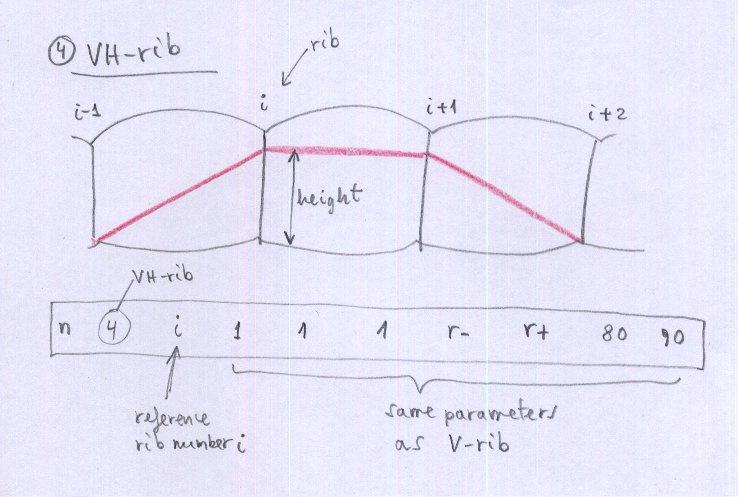 ④ VH-rib
rib
i-1 i i+1 i+2
height
VH-rib
n ④ i 1 1 1 r- r+ 80 90
reference
rib number i
same parameters
as V-rib